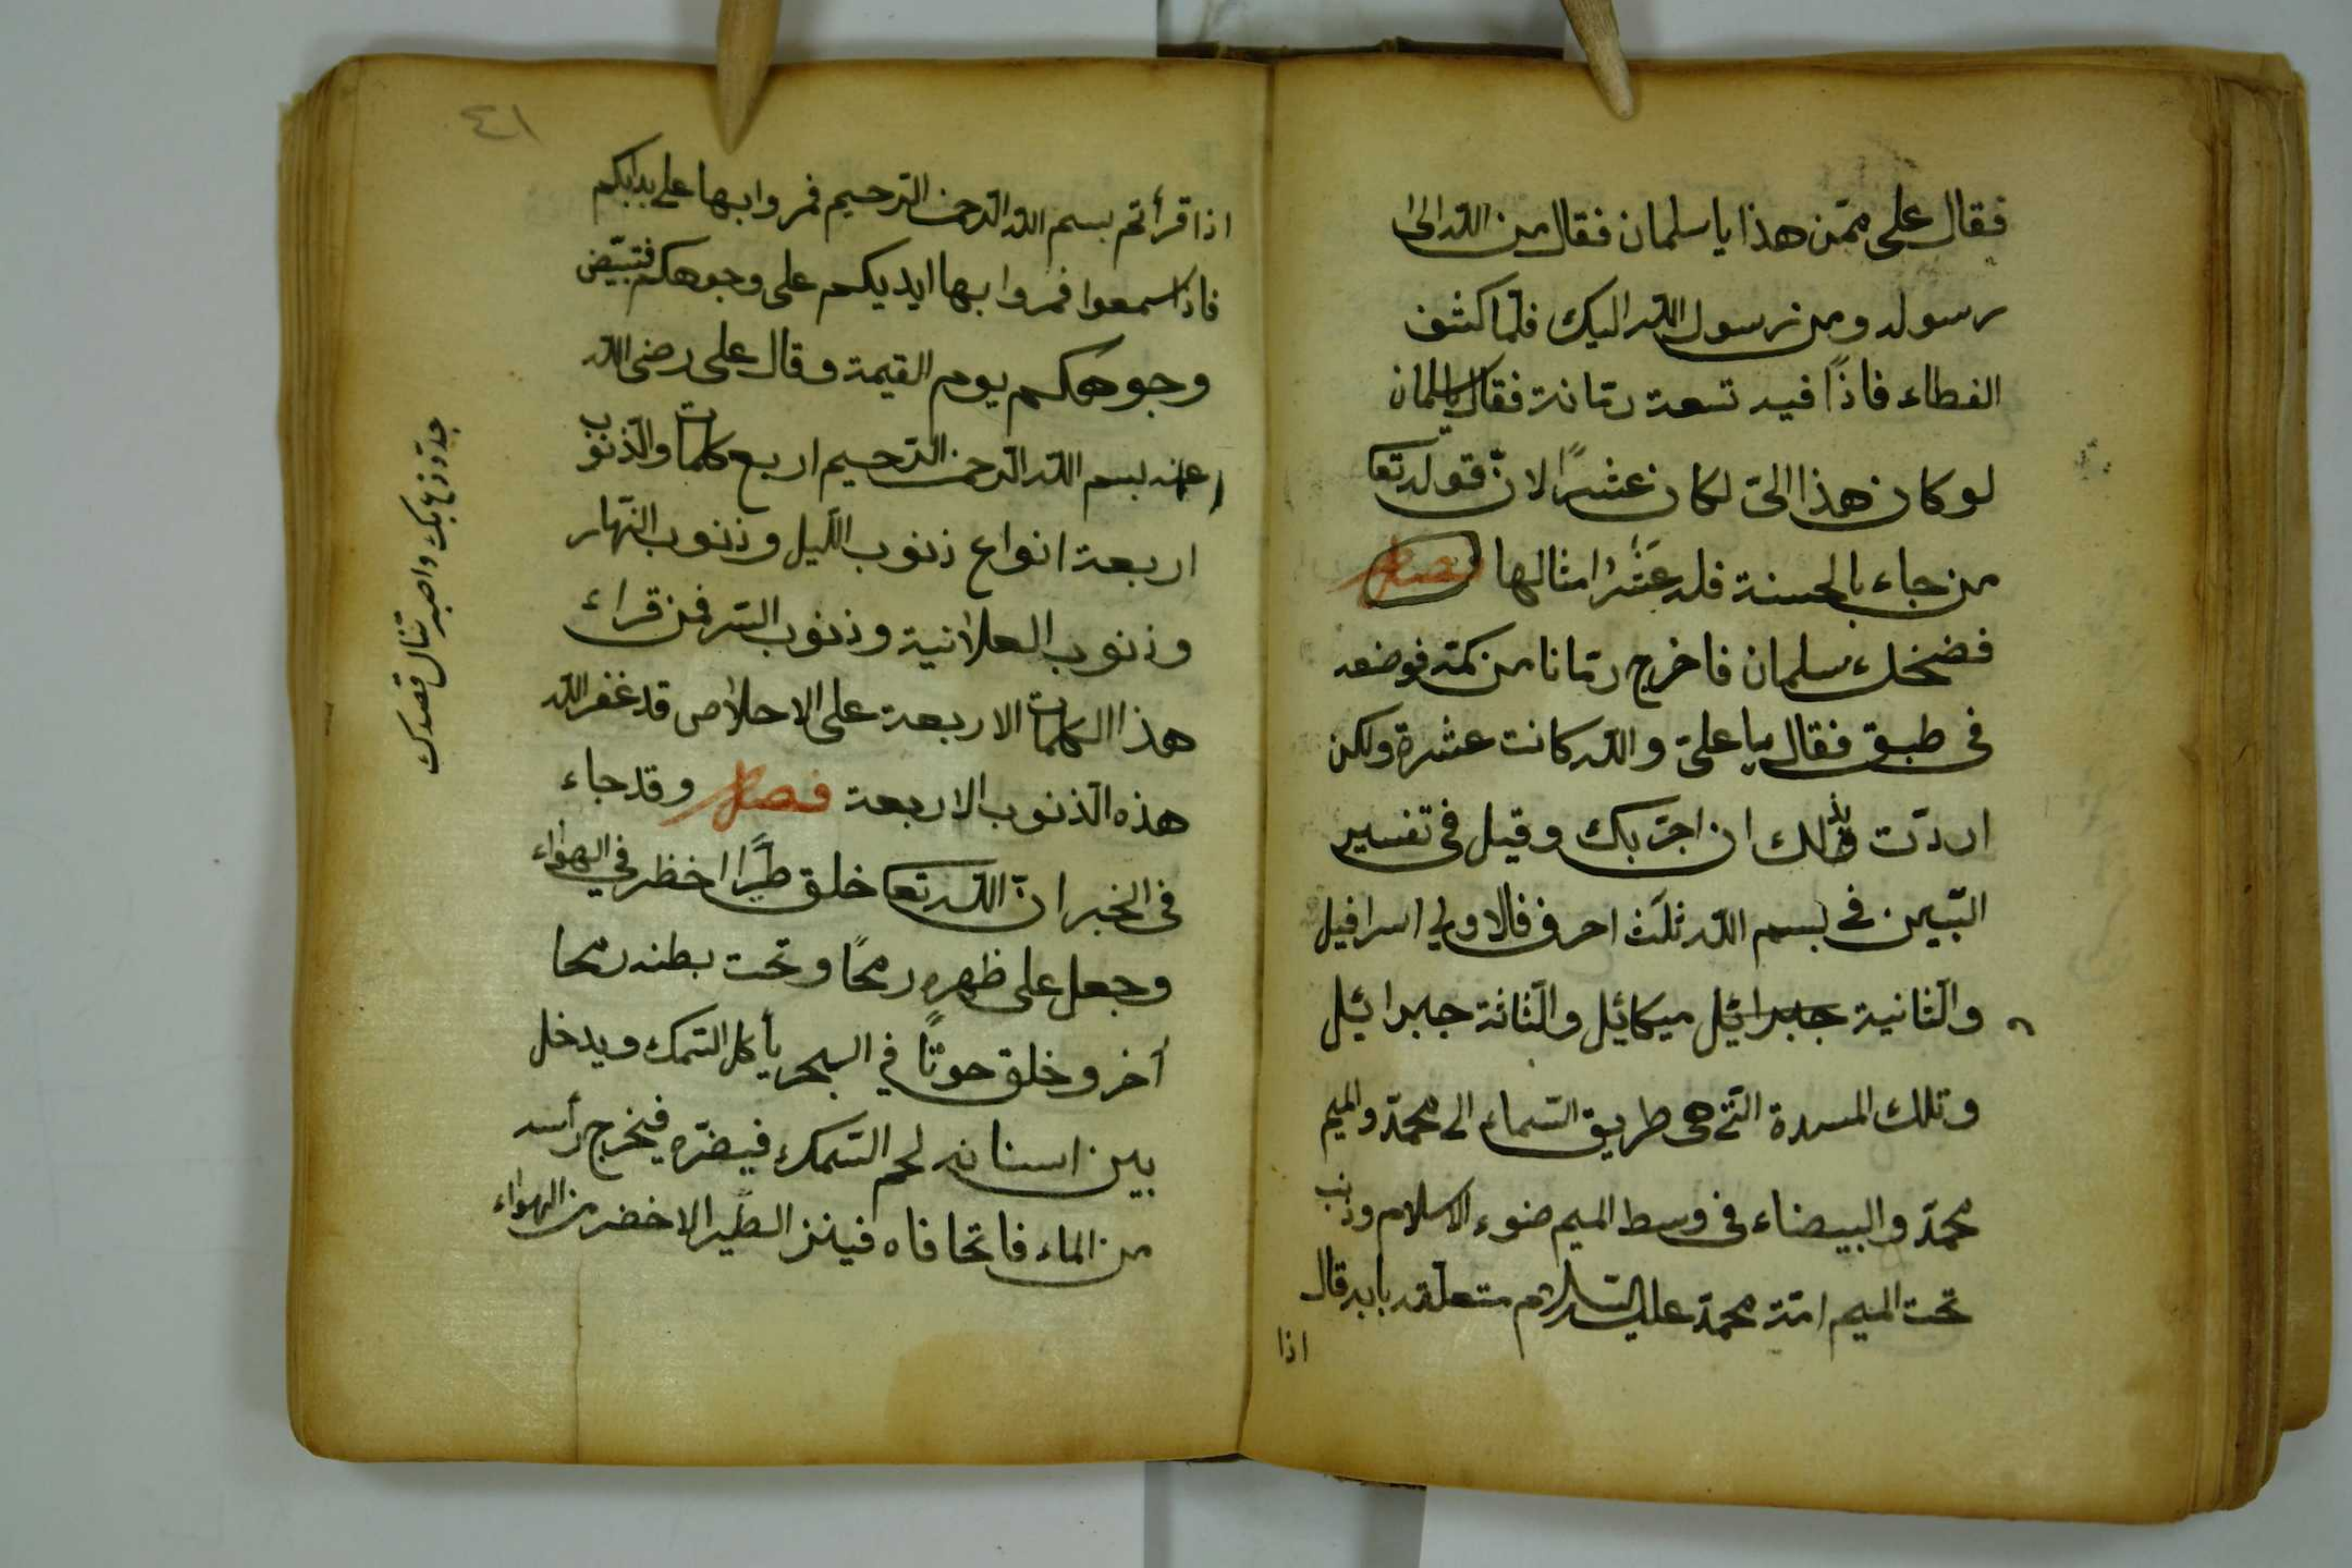 فقال على ممّن هذا يا سلمان فقال من اللّه الى
رسوله ومن رسول اللّه اليك فلمّا كشف
الغطاء فاذاً فيه تسعة رمّانة فقال يا سلمان
لو كان هذا الىّ لكان عشرًا لانّ قوله تعا
من جاء بالحسنة فله عَشْر امثالها فصل
فضحك سلمان فاخرج رمّانا من كمّه فوضعه
فى طبق فقال يا علىّ واللّه كانت عشرة ولكن
اردّت بذلك ان اجرّبك وقيل فى تفسير
السّين فى بسم اللّه ثلث احرف فالاولى اسرافيل
والثّانية جبرائيل ميكائيل والثّالثة جبرائيل
وتلك المسدة الّتى هى طريق السّماء الى محمّد والميم
محمّد والبيضاء فى وسط الميم ضوء الاسلام وذنب
تحت الميم امّة محمّد عليه السّلام متعلّقه بابه قال
اذا
٤١
اذا قرأتم بسم اللّه الرّحمن الرّحيم فمروا بها على
فاذا سمعوا فمروا بها ايديكم على وجوهكم فتبيّض
وجوهكم يوم القيمة وقال على رضى اللّه
عنه بسم اللّه الرّحمن الرّحيم اربع كلمات والذّنوب
اربعة انواع ذنوب اللّيل وذنوب النّهار
وذنوب العلانية وذنوب السّر فمن قراء
هذا الكلمات الاربعة على الاحلاص قد غفر اللّه
هذه الذّنوب الاربعة فصل وقد جاء
فى الخبر انّ اللّه تعا خلق طيرًا اخظر فى الهواء
وجعل على ظهره رمحًا وتحت بطنه رمحا
أخر وخلق حوتًا فى البحر يأكل السّمك ويدخل
بين اسنانه لحم السّمك فيضرّه فيخرج رأسه
من الماء فاتحا فاه فينز الطّير الاخضر من الهواء
واصبر تنال قصدك